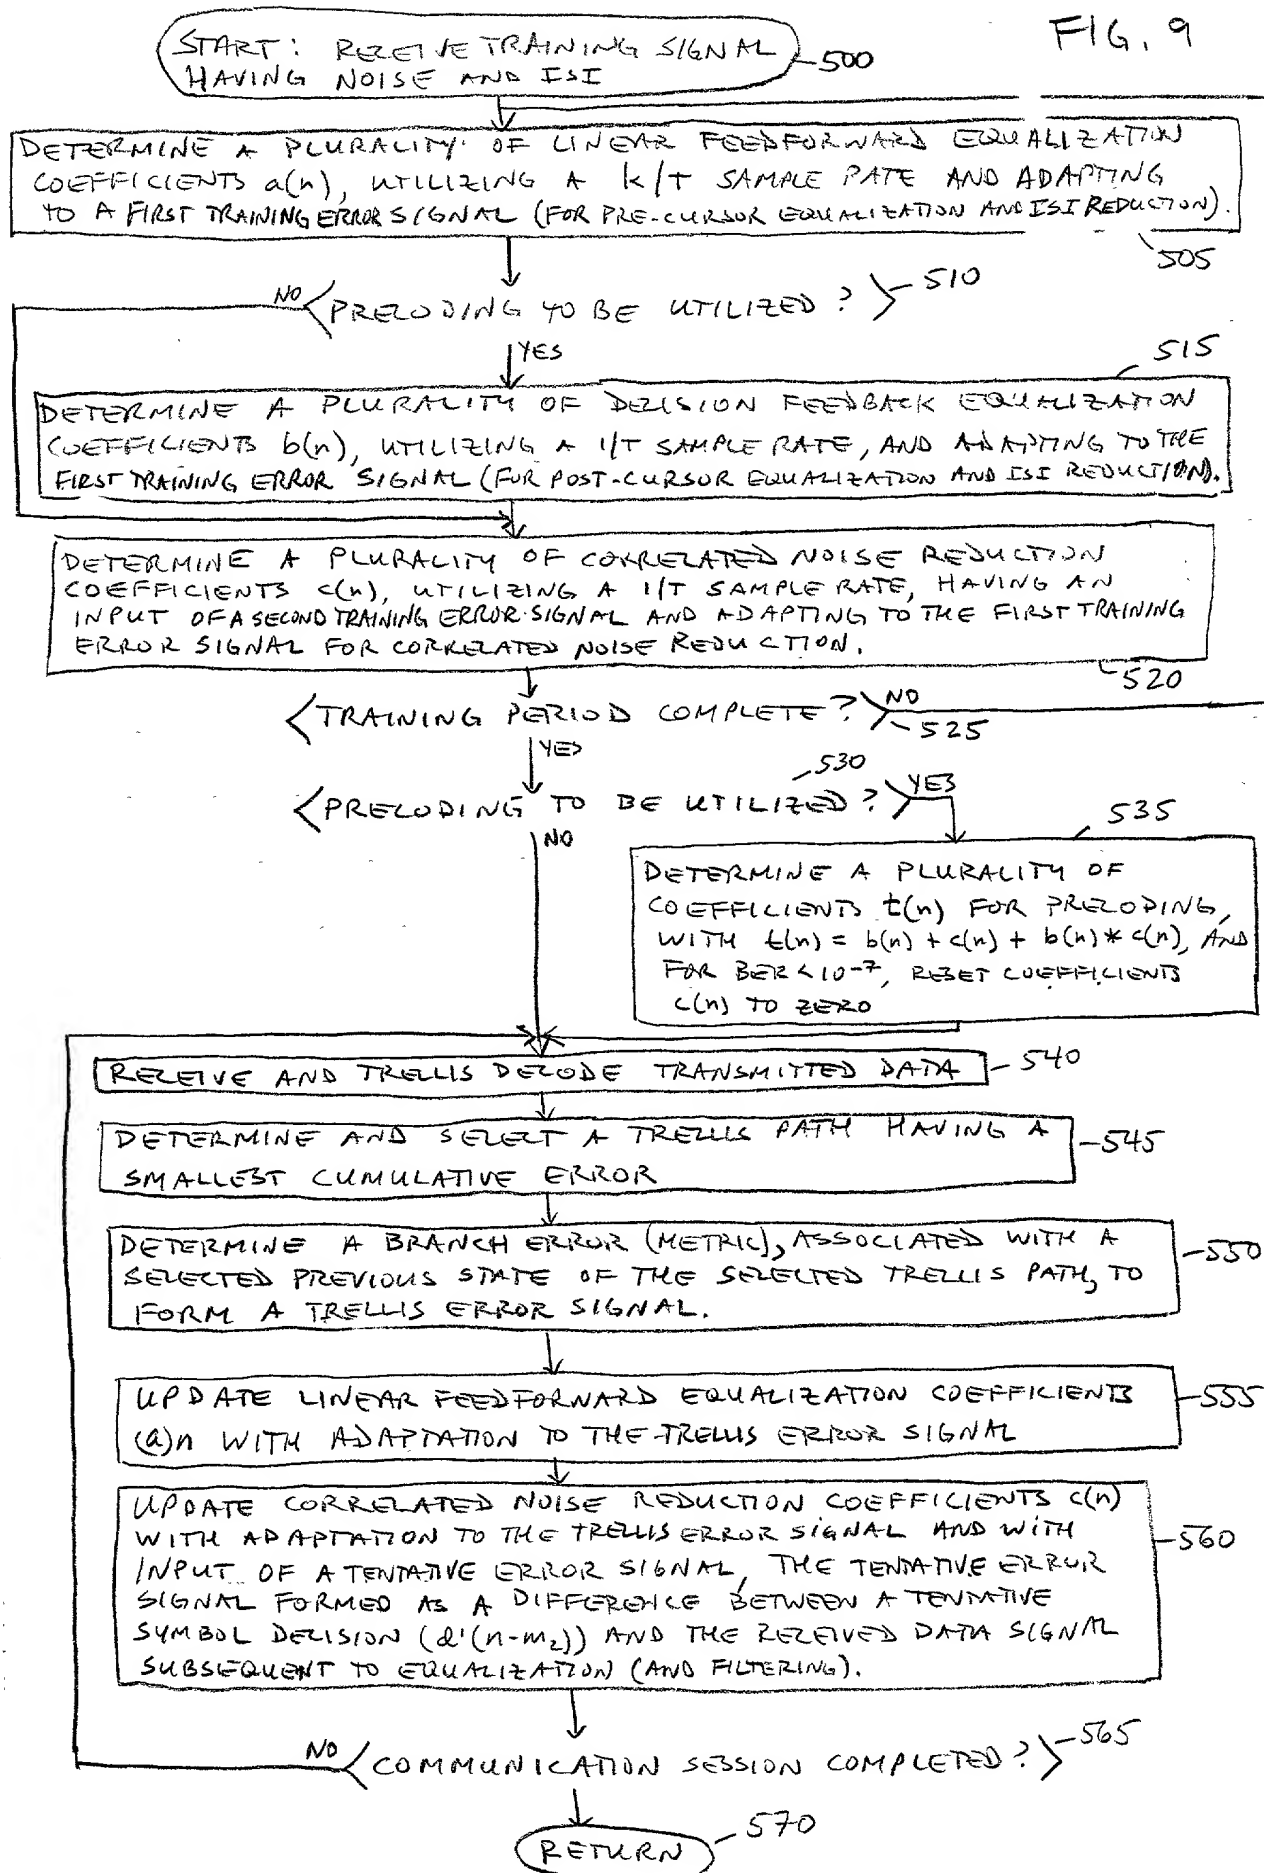 FIG. 9
START: RECEIVE TRAINING SIGNAL
HAVING NOISE AND ISI
500
DETERMINE A PLURALITY OF LINEAR FEEDFORWARD EQUALIZATION
COEFFICIENTS a(n), UTILIZING A k/T SAMPLE RATE AND ADAPTING
TO A FIRST TRAINING ERROR SIGNAL (FOR PRE-CURSOR EQUALIZATION AND ISI REDUCTION).
505
NO
PRECODING TO BE UTILIZED?
510
YES
515
DETERMINE A PLURALITY OF DECISION FEEDBACK EQUALIZATION
COEFFICIENTS b(n), UTILIZING A 1/T SAMPLE RATE, AND ADAPTING TO THE
FIRST TRAINING ERROR SIGNAL (FOR POST-CURSOR EQUALIZATION AND ISI REDUCTION).
DETERMINE A PLURALITY OF CORRELATED NOISE REDUCTION
COEFFICIENTS c(n), UTILIZING A 1/T SAMPLE RATE, HAVING AN
INPUT OF A SECOND TRAINING ERROR SIGNAL AND ADAPTING TO THE FIRST TRAINING
ERROR SIGNAL FOR CORRELATED NOISE REDUCTION.
520
TRAINING PERIOD COMPLETE?
NO
525
YES
530
PRECODING TO BE UTILIZED?
YES
NO
535
DETERMINE A PLURALITY OF
COEFFICIENTS t(n) FOR PRECODING,
WITH t(n) = b(n) + c(n) + b(n) * c(n), AND
FOR BER < 10-7, RESET COEFFICIENTS
c(n) TO ZERO
RECEIVE AND TRELLIS DECODE TRANSMITTED DATA
540
DETERMINE AND SELECT A TRELLIS PATH HAVING A
SMALLEST CUMULATIVE ERROR
545
DETERMINE A BRANCH ERROR (METRIC), ASSOCIATED WITH A
SELECTED PREVIOUS STATE OF THE SELECTED TRELLIS PATH, TO
FORM A TRELLIS ERROR SIGNAL.
550
UPDATE LINEAR FEEDFORWARD EQUALIZATION COEFFICIENTS
(a)n WITH ADAPTATION TO THE TRELLIS ERROR SIGNAL
555
UPDATE CORRELATED NOISE REDUCTION COEFFICIENTS c(n)
WITH ADAPTATION TO THE TRELLIS ERROR SIGNAL AND WITH
INPUT OF A TENTATIVE ERROR SIGNAL, THE TENTATIVE ERROR
SIGNAL FORMED AS A DIFFERENCE BETWEEN A TENTATIVE
SYMBOL DECISION (d'(n-m2)) AND THE RECEIVED DATA SIGNAL
SUBSEQUENT TO EQUALIZATION (AND FILTERING).
560
NO
COMMUNICATION SESSION COMPLETED?
565
RETURN
570